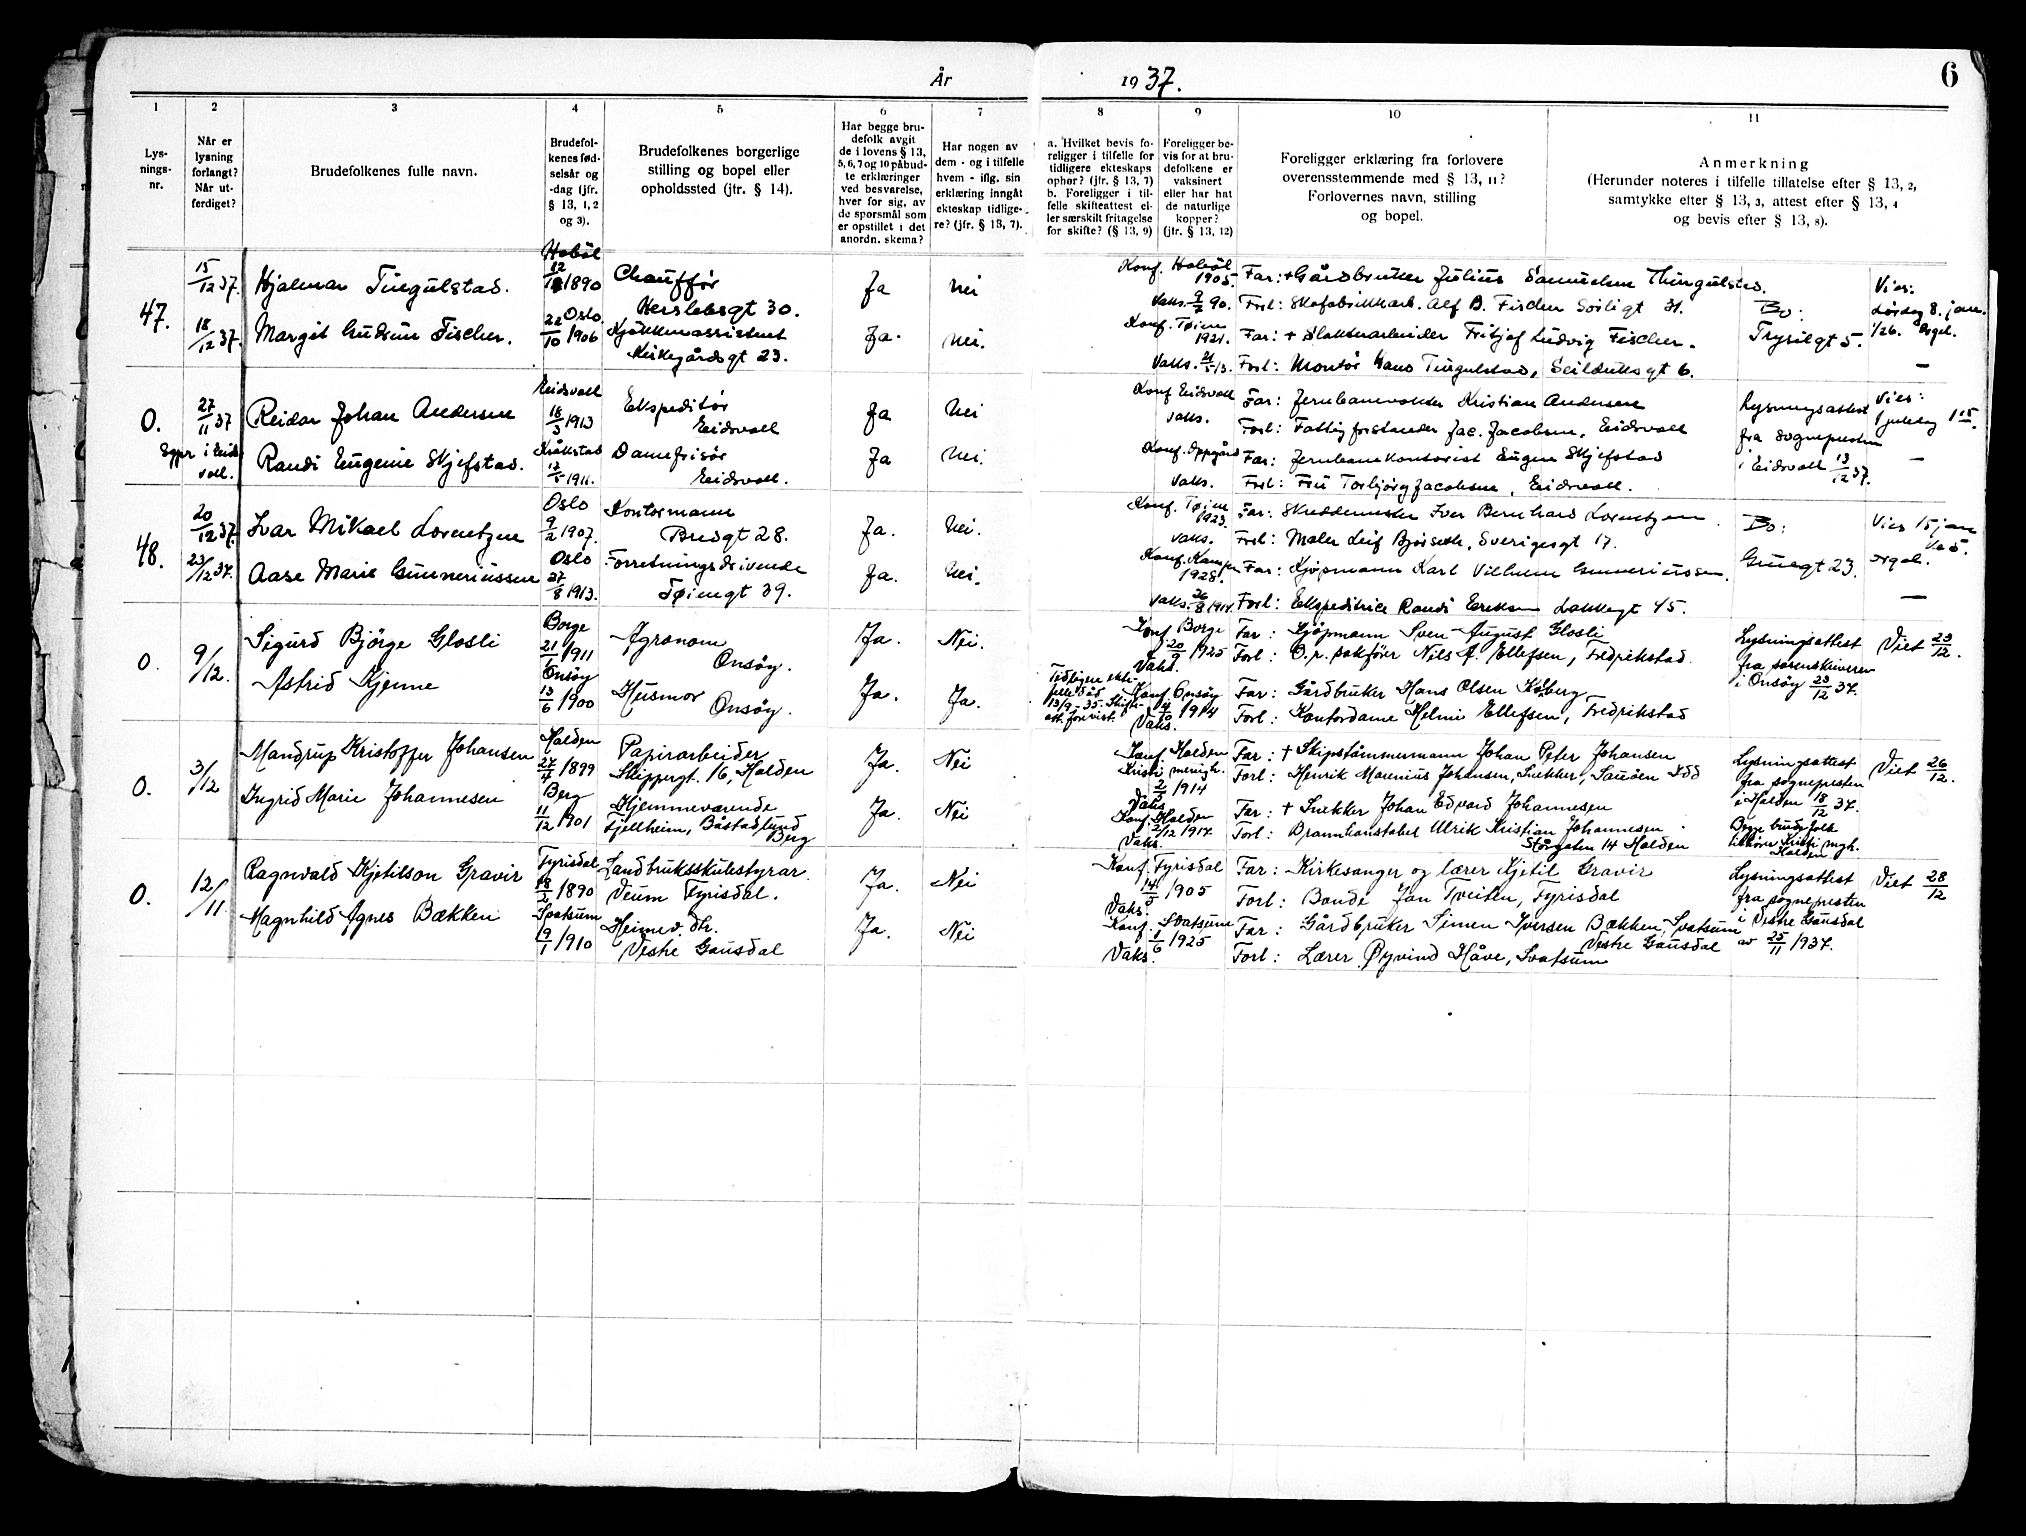 År 1937.
6
1 2 3 4 5 6 7 8 9 10 11
Lys-
nings-
nr.
Når er
lysning
forlangt?
Når ut-
ferdiget?
Brudefolkenes fulle navn.
Brudefol-
kenes fød-
selsår og
-dag (jfr.
§ 13, 1, 2
og 3).
Brudefolkenes borgerlige
stilling og bopel eller
opholdssted (jfr. § 14).
Har begge bru-
defolk avgit
de i lovens § 13,
5, 6, 7 og 10 påbud-
te erklæringer
ved besvarelse,
hver for sig, av
de spørsmål som
er opstillet i det
anordn. skema?
Har nogen av
dem - og i tilfelle
hvem - iflg. sin
erklæring inngått
ekteskap tidlige-
re? (jfr. § 13, 7).
a. Hvilket bevis fo-
religger i tilfelle for
tidligere ekteskaps
ophør? (jfr. § 13, 7)
b. Foreligger i til-
felle skifteattest el-
ler særskilt fritagelse
for skifte? (§ 13, 9)
Foreligger be-
vis for at bru-
defolkene er
vaksinert
eller har hat
de naturlige
kopper?
(jfr. § 13, 12)
Foreligger erklæring fra forlovere
overensstemmende med § 13, 11?
Forlovernes navn, stilling
og bopel.
Anmerkning
(Herunder noteres i tilfelle tillatelse efter § 13, 2,
samtykke efter § 13, 3, attest efter § 13, 4
og bevis efter § 13, 8).
47.
15/12 37.
Hjalmar Tingulstad.
Hobøl
1890
Chauffør
Herslebsgt 30.
Ja
Nei
Konf. Hobøl
1905.
Vaks. 90.
Far: + Gårdbruker Julius Samuelsen Thingulstad.
Forl: Skofabrikkarb. Alf B. Fischer Sørligt 31.
Bo:
Trysilgt 5.
Vies:
Lørdag 8. jan.
Orgel.
18/12 37.
Margit Gudrun Fischer.
Oslo
22/10 1906
Kjøkkenassistent
Kirkegårdsgt 23.
Ja.
Nei.
Konf. Tøien
1921.
Vaks.
Far: + Slakteriarbeider Fritjof Ludvig Fischer.
Forl: Montør Hans Tingulstad, Seilduksgt 6.
—
O.
Egpr i Eids-
voll.
27/11 37
Reidar Johan Andersen
Eidsvoll
18/3 1913
Ekspeditør
Eidsvoll
Ja
Nei
Konf Eidsvoll
Vaks.
Far: Jernbanevokter Kristian Andersen
Forl: Fattigforstander Jac. Jacobsen, Eidsvoll
Lysningsattest
fra sognepresten
i Eidsvoll 13/12 37.
Vies:
1 juledag 1 15.
Randi Eugenie Skjefstad.
Kråkstad
1911.
Damefrisør
Eidsvoll.
Ja
Nei.
Konf. Oppgård
Vaks.
Far: Jernbanekontorist Eugen Skjefstad
Forl: Fru Torbjørg Jacobsen, Eidsvoll.
—
48.
20/12 37.
Ivar Mikael Lorentzen
Oslo
9/2 1907.
Kontormann
Bredgt 28.
Ja.
Nei.
Konf. Tøien
1923.
Vaks.
Far: Skreddermester Iver Bernhard Lorentzen.
Forl: Maler Leif Bjørseth, Sverigesgt 17.
Bo:
Gruegt 23.
Vies 15 jan
orgel.
23/12 37.
Aase Marie Gunneriussen
Oslo
27/8 1913.
Forretningsdrivende
Tøiengt 39.
Ja.
Nei.
Konf. Kampen
1928.
Vaks. 26/8 1914.
Far: Kjøpmann Karl Vilhelm Gunneriussen.
Forl: Ekspeditrice Randi Eriksen Lakkegt 45.
—
O.
9/12.
Sigurd Bjørge Glosli
Borge
21/1 1911
Agronom
Onsøy.
Ja.
Nei.
Konf Borge
20/9 1925
Vaks.
Far: Kjøpmann Sven August Glosli
Forl: O.r. sakfører Nils A. Ellefsen, Fredrikstad
Lysningsattest
fra sorenskriveren
i Onsøy 23/12 37.
Viet 23/12.
Astrid Kjenne
Onsøy
13/6 1900
Husmor
Onsøy.
Ja.
Ja.
Tidligere ekte-
felle død
13/9-35. Skifte-
att. forevist.
Konf Onsøy
1914
Vaks.
Far: Gårdbruker Hans Olsen Kåberg
Forl: Kontordame Helmi Ellefsen, Fredrikstad
O.
3/12
Mandrup Kristoffer Johansen
Halden
27/4 1899
Papirarbeider
Skippergt. 16, Halden
Ja.
Nei
Konf Halden
Kristi menigh.
1914
Vaks.
Far: + Skipstømmermann Johan Peter Johansen
Forl: Henrik Marenius Johansen, Snekker, Sauøen Idd
Lysningsattest
fra sognepresten
i Halden 18/12 37.
Viet 26/12.
Ingrid Marie Johannesen
Berg
11/12 1901
Hjemmeværende
Fjellheim, Båstadlund
Berg
Ja.
Nei
Konf Halden
1917.
Vaks.
Far: + Snekker Johan Edvard Johannesen
Forl: Brannkonstabel Ulrik Kristian Johannesen
Storgaten 14 Halden
Begge brudefolk
tilhører Kristi mgh.
Halden
O.
12/11.
Ragnvald Kjetilson Gravir
Fyrisdal
18/2 1890
Landbruksskulestyrar.
Veum Fyrisdal.
Ja.
Nei
Konf Fyrisdal
14/5 1905
Vaks.
Far: Kirkesanger og lærer Kjetil Gravir
Forl: Bonde Jan Tveiten, Fyrisdal
Lysningsattest
fra sognepresten
i Vestre Gausdal
av 25/11 1937.
Viet 28/12
Magnhild Agnes Bækken
Svatsum
9/1 1910
Heimev. dtr.
Vestre Gausdal
Ja.
Nei
Konf. Svatsum
1/6 1925
Vaks.
Far: Gårdbruker Simen Iversen Bækken, Svatsum
Vestre Gausdal
Forl: Lærer Øyvind Håve, Svatsum